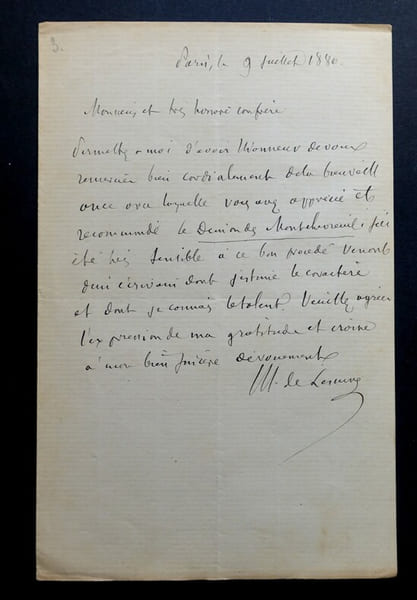 3.
Paris, le 9 Juillet 1880.
Monsieur et très honoré confrère
Permettez moi d'avoir l'honneur de vous
remercier bien cordialement de la bienveill
ance avec laquelle vous avez apprécié et
recommandé le Démon de Montchevreuil. j'ai
été très sensible à ce bon procédé venant
d'un écrivain dont j'estime le caractère
et dont je connais le talent. Veuillez agréer
l'expression de ma gratitude et croire
à mon bien sincère dévouement
M. de Lescure